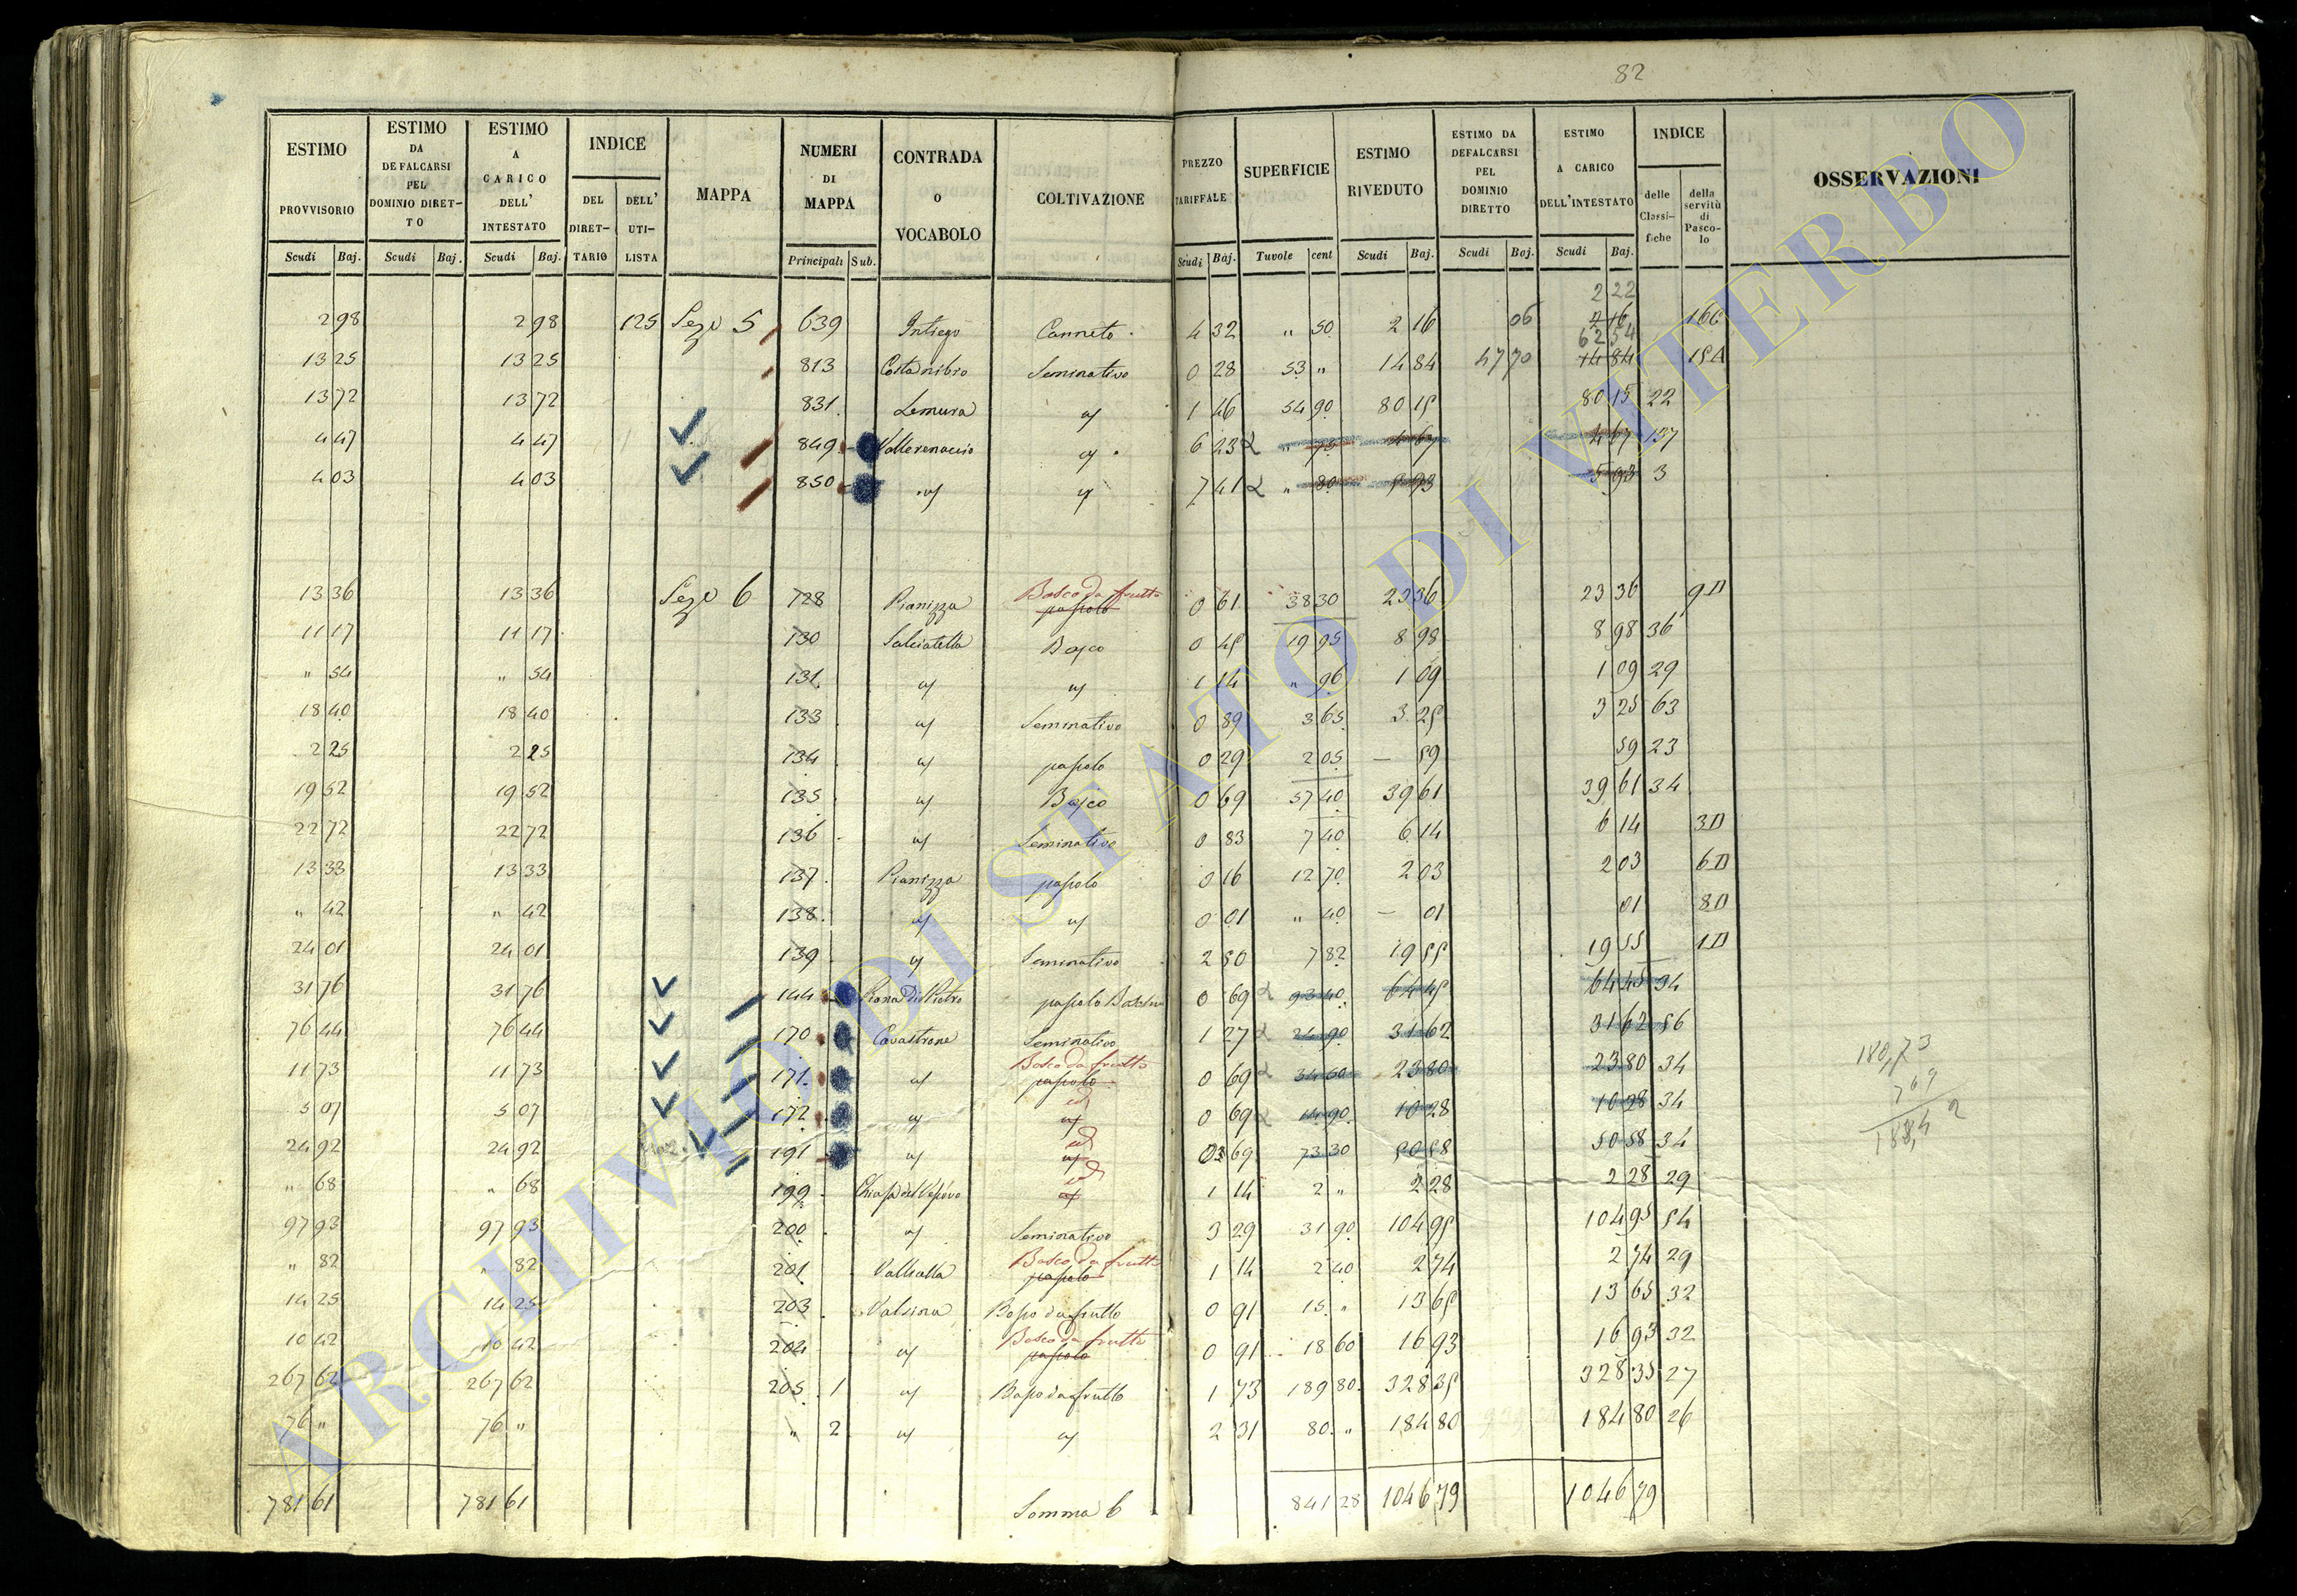 82
ESTIMO PROVVISORIO
ESTIMO DA DEFALCARSI PEL DOMINIO DIRETTO
ESTIMO A CARICO DELL' INTESTATO
INDICE
DEL DIRETTARIO
DELL' UTILISTA
MAPPA
NUMERI DI MAPPA
CONTRADA O VOCABOLO
COLTIVAZIONE
PREZZO TARIFFALE
SUPERFICIE
ESTIMO RIVEDUTO
ESTIMO DA DEFALCARSI PEL DOMINIO DIRETTO
ESTIMO A CARICO DELL'INTESTATO
INDICE
delle Classifiche
della servitù di Pascolo
OSSERVAZIONI
Scudi Baj. Scudi Baj. Scudi Baj. Principali Sub. Scudi Baj. Tavole cent Scudi Baj. Scudi Baj. Scudi Baj.
2 22
2 98 2 98 125 Sez 5 639 Canneto 4 32 " 50 2 16 06 2 16 16C
62 54
13 25 13 25 813 Costa nibio Seminativo 0 28 53 " 14 84 47 70 14 84 15A
13 72 13 72 831 Lemura 1 46 54 90 80 15 80 15 22
4 47 4 47 849 6 23 " 75 4 67 4 67 137
4 03 4 03 850 7 41 " 80 5 93 5 93 3
Bosco da frutto
13 36 13 36 Sez 6 128 Pianizza pascolo 0 61 38 30 23 36 23 36 9D
11 17 11 17 130 Salciatella Bosco 0 45 19 95 8 98 8 98 36
" 54 " 54 131 1 14 " 96 1 09 1 09 29
18 40 18 40 133 Seminativo 0 89 3 65 3 25 3 25 63
2 25 2 25 134 pascolo 0 29 2 05 — 59 59 23
19 52 19 52 135 Bosco 0 69 57 40 39 61 39 61 34
22 72 22 72 136 Seminativo 0 83 7 40 6 14 6 14 3D
13 33 13 33 137 Pianizza pascolo 0 16 12 70 2 03 2 03 6D
" 42 " 42 138 0 01 " 40 — 01 01 8D
24 01 24 01 139 Seminativo 2 50 7 82 19 55 19 55 1D
31 76 31 76 144 Piana Di Pietro pascolo 0 69 93 40 64 45 64 45 34
76 44 76 44 170 Cavastrone Seminativo 1 27 24 90 31 62 31 62 56
Bosco da frutto
11 73 11 73 171 pascolo 0 69 34 50 23 80 23 80 34
5 07 5 07 172 0 69 14 90 10 28 10 28 34
24 92 24 92 191 69 73 30 50 58 50 58 34
" 68 " 68 199 1 14 2 " 2 28 2 28 29
97 93 97 93 200 Seminativo 3 29 31 90 104 95 104 95 54
Bosco da frutto
" 82 " 82 201 pascolo 1 14 2 40 2 74 2 74 29
14 25 14 25 203 Bosco da frutto 0 91 15 " 13 65 13 65 32
Bosco da frutto
10 42 10 42 204 pascolo 0 91 18 60 16 93 16 93 32
267 62 267 62 205 1 Bosco da frutto 1 73 189 80 328 35 328 35 27
76 " 76 " " 2 2 31 80 " 184 80 184 80 26
781 61 781 61 Somma 6 841 28 1046 79 1046 79
180,73
7 69
ARCHIVIO DI STATO DI VITERBO